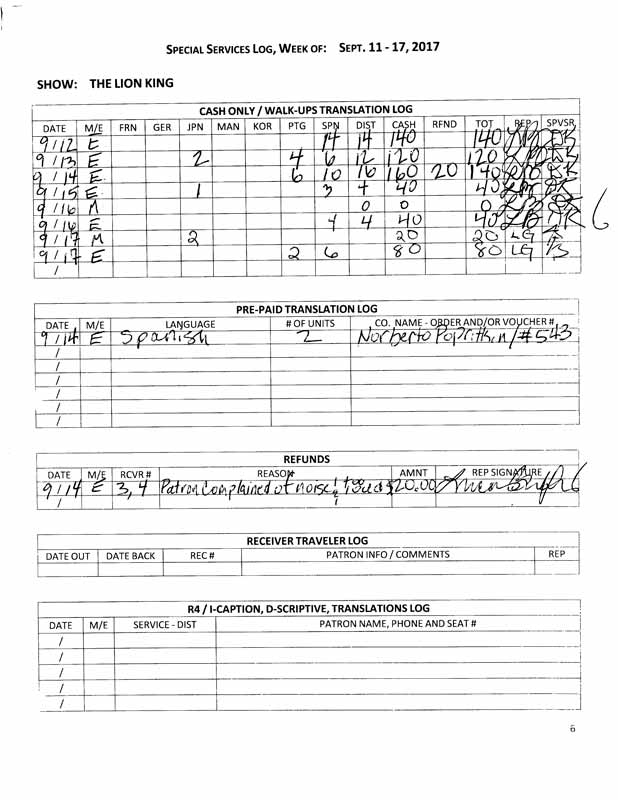 SPECIAL SERVICES LOG, WEEK OF: SEPT. 11 - 17, 2017
SHOW: THE LION KING
CASH ONLY / WALK-UPS TRANSLATION LOG
DATE M/E FRN GER JPN MAN KOR PTG SPN DIST CASH RFND TOT REP SPVSR
9/12 E 14 14 140 140
9/13 E 2 4 6 12 120 120
9/14 E 6 10 16 160 20 140
9/15 E 1 3 4 40 40
9/16 M 0 0 0
9/16 E 4 4 40 40
9/17 M 2 20 20 LG
9/17 E 2 6 80 80 LG
/
PRE-PAID TRANSLATION LOG
DATE M/E LANGUAGE # OF UNITS CO. NAME - ORDER AND/OR VOUCHER #
9/14 E Spanish 2 Norberto /#543
/
/
/
/
/
/
REFUNDS
DATE M/E RCVR # REASON AMNT REP SIGNATURE
9/14 E 3,4 Patron complained of noise! $20.00
/
RECEIVER TRAVELER LOG
DATE OUT DATE BACK REC # PATRON INFO / COMMENTS REP
R4 / I-CAPTION, D-SCRIPTIVE, TRANSLATIONS LOG
DATE M/E SERVICE - DIST PATRON NAME, PHONE AND SEAT #
/
/
/
/
/
6